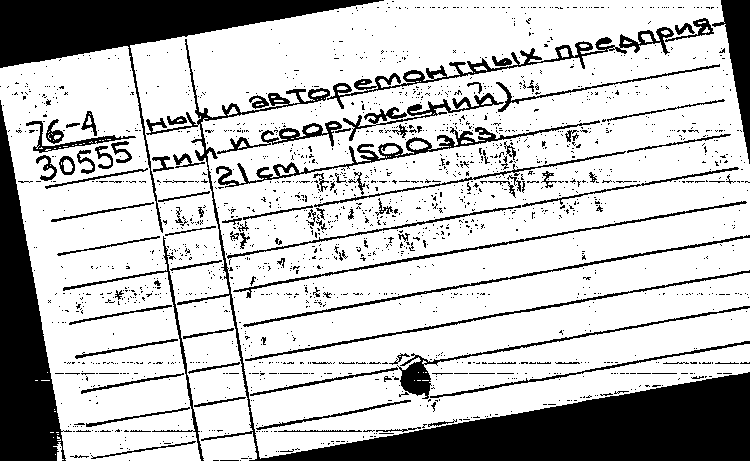 76-4
30555
ных и авторемонтных предприя-
тий и сооружений).
21 cm. 1500 экз.